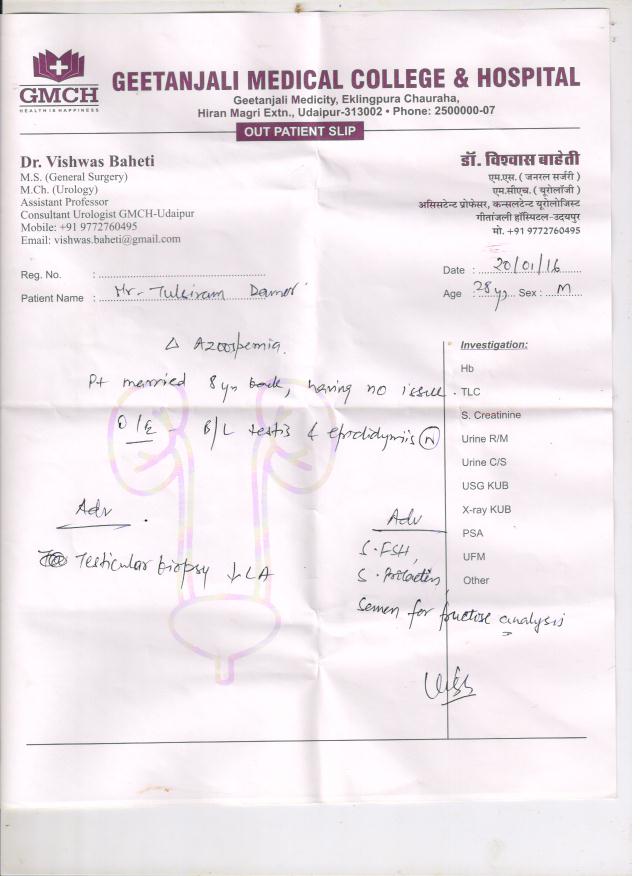 GMCH
HEALTH IS HAPPINESS
GEETANJALI MEDICAL COLLEGE & HOSPITAL
Geetanjali Medicity, Eklingpura Chauraha,
Hiran Magri Extn., Udaipur-313002 • Phone: 2500000-07
OUT PATIENT SLIP
Dr. Vishwas Baheti
M.S. (General Surgery)
M.Ch. (Urology)
Assistant Professor
Consultant Urologist GMCH-Udaipur
Mobile: +91 9772760495
Email: vishwas.baheti@gmail.com
डॉ. विश्वास बाहेती
एम.एस. ( जनरल सर्जरी )
एम.सीएच. ( यूरोलॉजी )
असिसटेन्ट प्रोफेसर, कन्सलटेन्ट यूरोलोजिस्ट
गीतांजली हॉस्पिटल-उदयपुर
मो. +91 9772760495
Reg. No. :
Date : 20/01/16
Patient Name : Mr. Tulsiram Damor
Age : 28 y Sex : M
Δ Azoospemia.
Pt married 8 yr back, having no issue.
O/E - B/L testis & epididymis (N)
Adv
Testicular biopsy ↓ LA
Adv
S. FSH,
S. Prolactin,
Semen for fructose analysis
Investigation:
Hb
TLC
S. Creatinine
Urine R/M
Urine C/S
USG KUB
X-ray KUB
PSA
UFM
Other